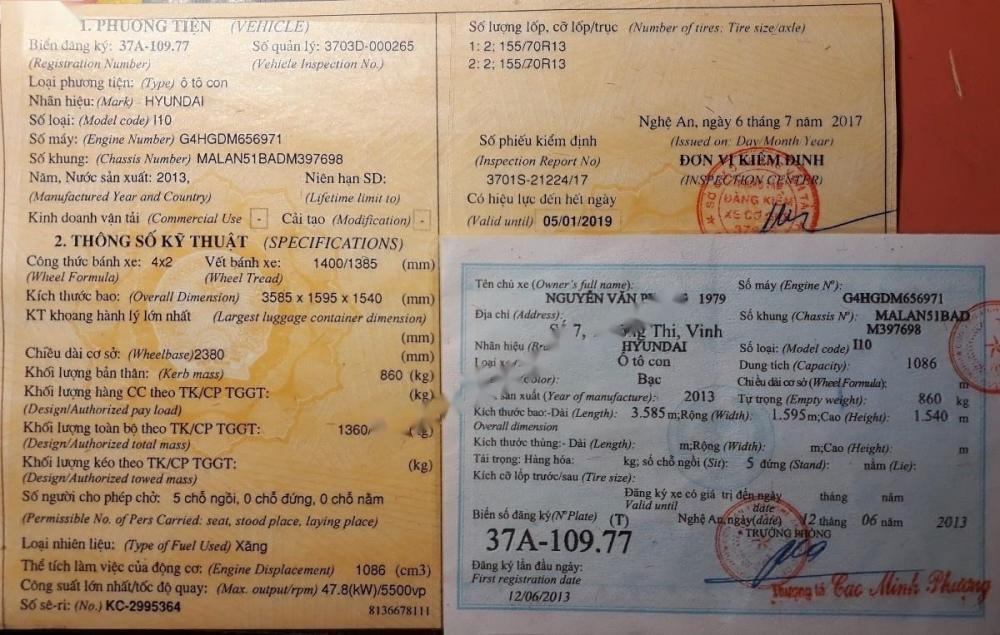 1. PHƯƠNG TIỆN (VEHICLE)
Biển đăng ký: 37A-109.77 Số quản lý: 3703D-000265
(Registration Number) (Vehicle Inspection No.)
Loại phương tiện: (Type) ô tô con
Nhãn hiệu: (Mark) HYUNDAI
Số loại: (Model code) I10
Số máy: (Engine Number) G4HGDM656971
Số khung: (Chassis Number) MALAN51BADM397698
Năm, Nước sản xuất: 2013, Niên hạn SD:
(Manufactured Year and Country) (Lifetime limit to)
Kinh doanh vận tải (Commercial Use - Cải tạo (Modification) -
2. THÔNG SỐ KỸ THUẬT (SPECIFICATIONS)
Công thức bánh xe: 4x2 Vết bánh xe: 1400/1385 (mm)
(Wheel Formula) (Wheel Tread)
Kích thước bao: (Overall Dimension) 3585 x 1595 x 1540 (mm)
KT khoang hành lý lớn nhất (Largest luggage container dimension)
(mm)
Chiều dài cơ sở: (Wheelbase)2380 (mm)
Khối lượng bản thân: (Kerb mass) 860 (kg)
Khối lượng hàng CC theo TK/CP TGGT: (kg)
(Design/Authorized pay load)
Khối lượng toàn bộ theo TK/CP TGGT: 1360/
(Design/Authorized total mass)
Khối lượng kéo theo TK/CP TGGT: (kg)
(Design/Authorized towed mass)
Số người cho phép chở: 5 chỗ ngồi, 0 chỗ đứng, 0 chỗ nằm
(Permissible No. of Pers Carried: seat, stood place, laying place)
Loại nhiên liệu: (Type of Fuel Used) Xăng
Thể tích làm việc của động cơ: (Engine Displacement) 1086 (cm3)
Công suất lớn nhất/tốc độ quay: (Max. output/rpm) 47.8(kW)/5500vp
Số sê-ri: (No.) KC-2995364 8136678111
Số lượng lốp, cỡ lốp/trục (Number of tires: Tire size/axle)
1: 2; 155/70R13
2: 2; 155/70R13
Nghệ An, ngày 6 tháng 7 năm 2017
Số phiếu kiểm định (Issued on: Day/Month Year)
(Inspection Report No) ĐƠN VỊ KIỂM ĐỊNH
3701S-21224/17 (INSPECTION CENTER)
Có hiệu lực đến hết ngày
(Valid until) 05/01/2019
ĐĂNG KIỂM
XE CƠ
Tên chủ xe (Owner's full name):
NGUYỄN VĂN 1979
Địa chỉ (Address):
7, Thị, Vinh
Nhãn hiệu HYUNDAI
Loại Ô tô con
Bạc
sản xuất (Year of manufacture): 2013
Kích thước bao:-Dài (Length): 3.585 m;Rộng (Width): 1.595 m;Cao (Height): 1.540 m
Overall dimension
Kích thước thùng:- Dài (Length): m;Rộng (Width): m;Cao (Height): m
Tải trọng: Hàng hóa: kg; số chỗ ngồi (Sit): 5 đứng (Stand): nằm (Lie):
Kích cỡ lốp trước/sau (Tire size):
Số máy (Engine Nº):
G4HGDM656971
Số khung (Chassis Nº): MALAN51BAD
M397698
Số loại: (Model code) I10
Dung tích (Capacity): 1086
Chiều dài cơ sở (Wheel Formula): m
Tự trọng (Empty weight): 860 kg
Đăng ký xe có giá trị đến ngày tháng năm
Valid until date
Biển số đăng ký(Nº Plate) (T) Nghệ An,ngày(date) 12 tháng 06 năm 2013
37A-109.77
TRƯỞNG PHÒNG
Đăng ký lần đầu ngày:
First registration date
12/06/2013
Thượng tá: Cao Minh Phượng